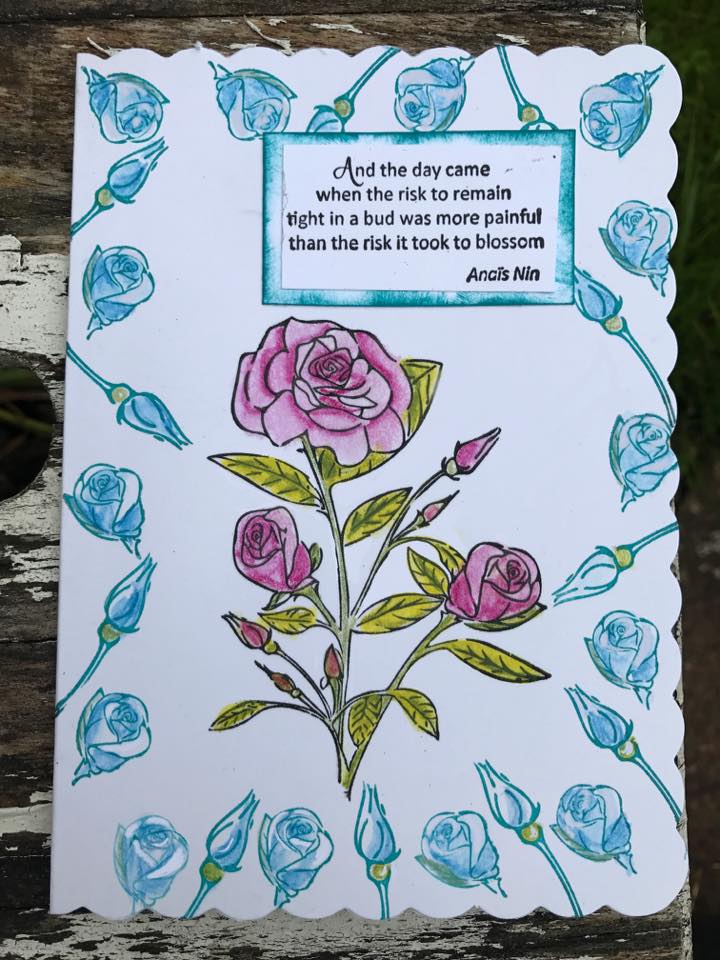 And the day came
when the risk to remain
tight in a bud was more painful
than the risk it took to blossom
Anaïs Nin